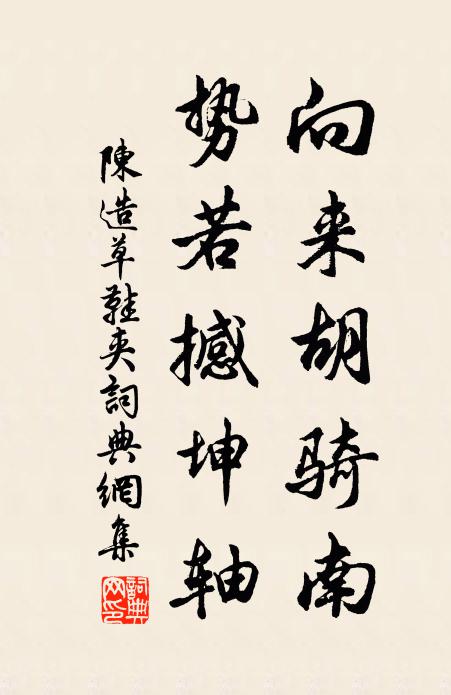 向来胡骑南
势若撼坤轴
陳造草鞵夹詞典網集
詞典网印